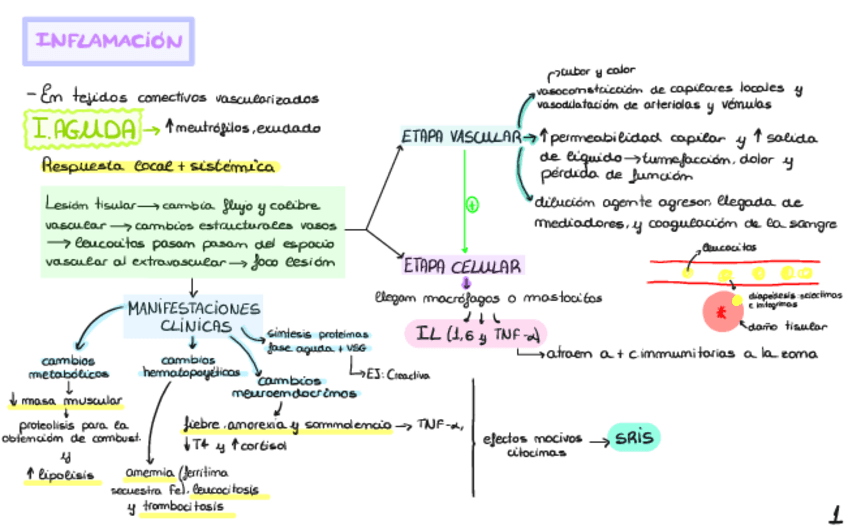 INFLAMACIÓN
- En tejidos conectivos vascularizados
I. AGUDA → ↑ neutrófilos, exudado
Respuesta local + sistémica
Lesión tisular → cambia flujo y calibre
vascular → cambios estructurales vasos
→ leucocitos pasan pasan del espacio
vascular al extravascular → foco lesión
ETAPA VASCULAR
rubor y calor
vasoconstricción de capilares locales y
vasodilatación de arteriolas y vénulas
↑ permeabilidad capilar y ↑ salida
de líquido → tumefacción, dolor y
pérdida de función
dilución agente agresor, llegada de
mediadores, y coagulación de la sangre
+
ETAPA CELULAR
llegan macrófagos o mastocitos
IL (1, 6 y TNF-α)
→ atraen a + c immunitarias a la zona
leucocitos
diapédesis selectinas
e integrinas
daño tisular
MANIFESTACIONES
CLÍNICAS
síntesis proteínas
fase aguda + VSG
→ EJ: Creactiva
cambios
metabólicos
↓ masa muscular
proteolisis para la
obtención de combust.
y
↑ lipolisis
cambios
hematopoyéticos
anemia (ferritina
secuestra Fe), leucocitosis
y trombocitosis
cambios
neuroendocrinos
fiebre, anorexia y somnolencia → TNF-α,
↓ T4 y ↑ cortisol
efectos nocivos → SRIS
citocinas
1